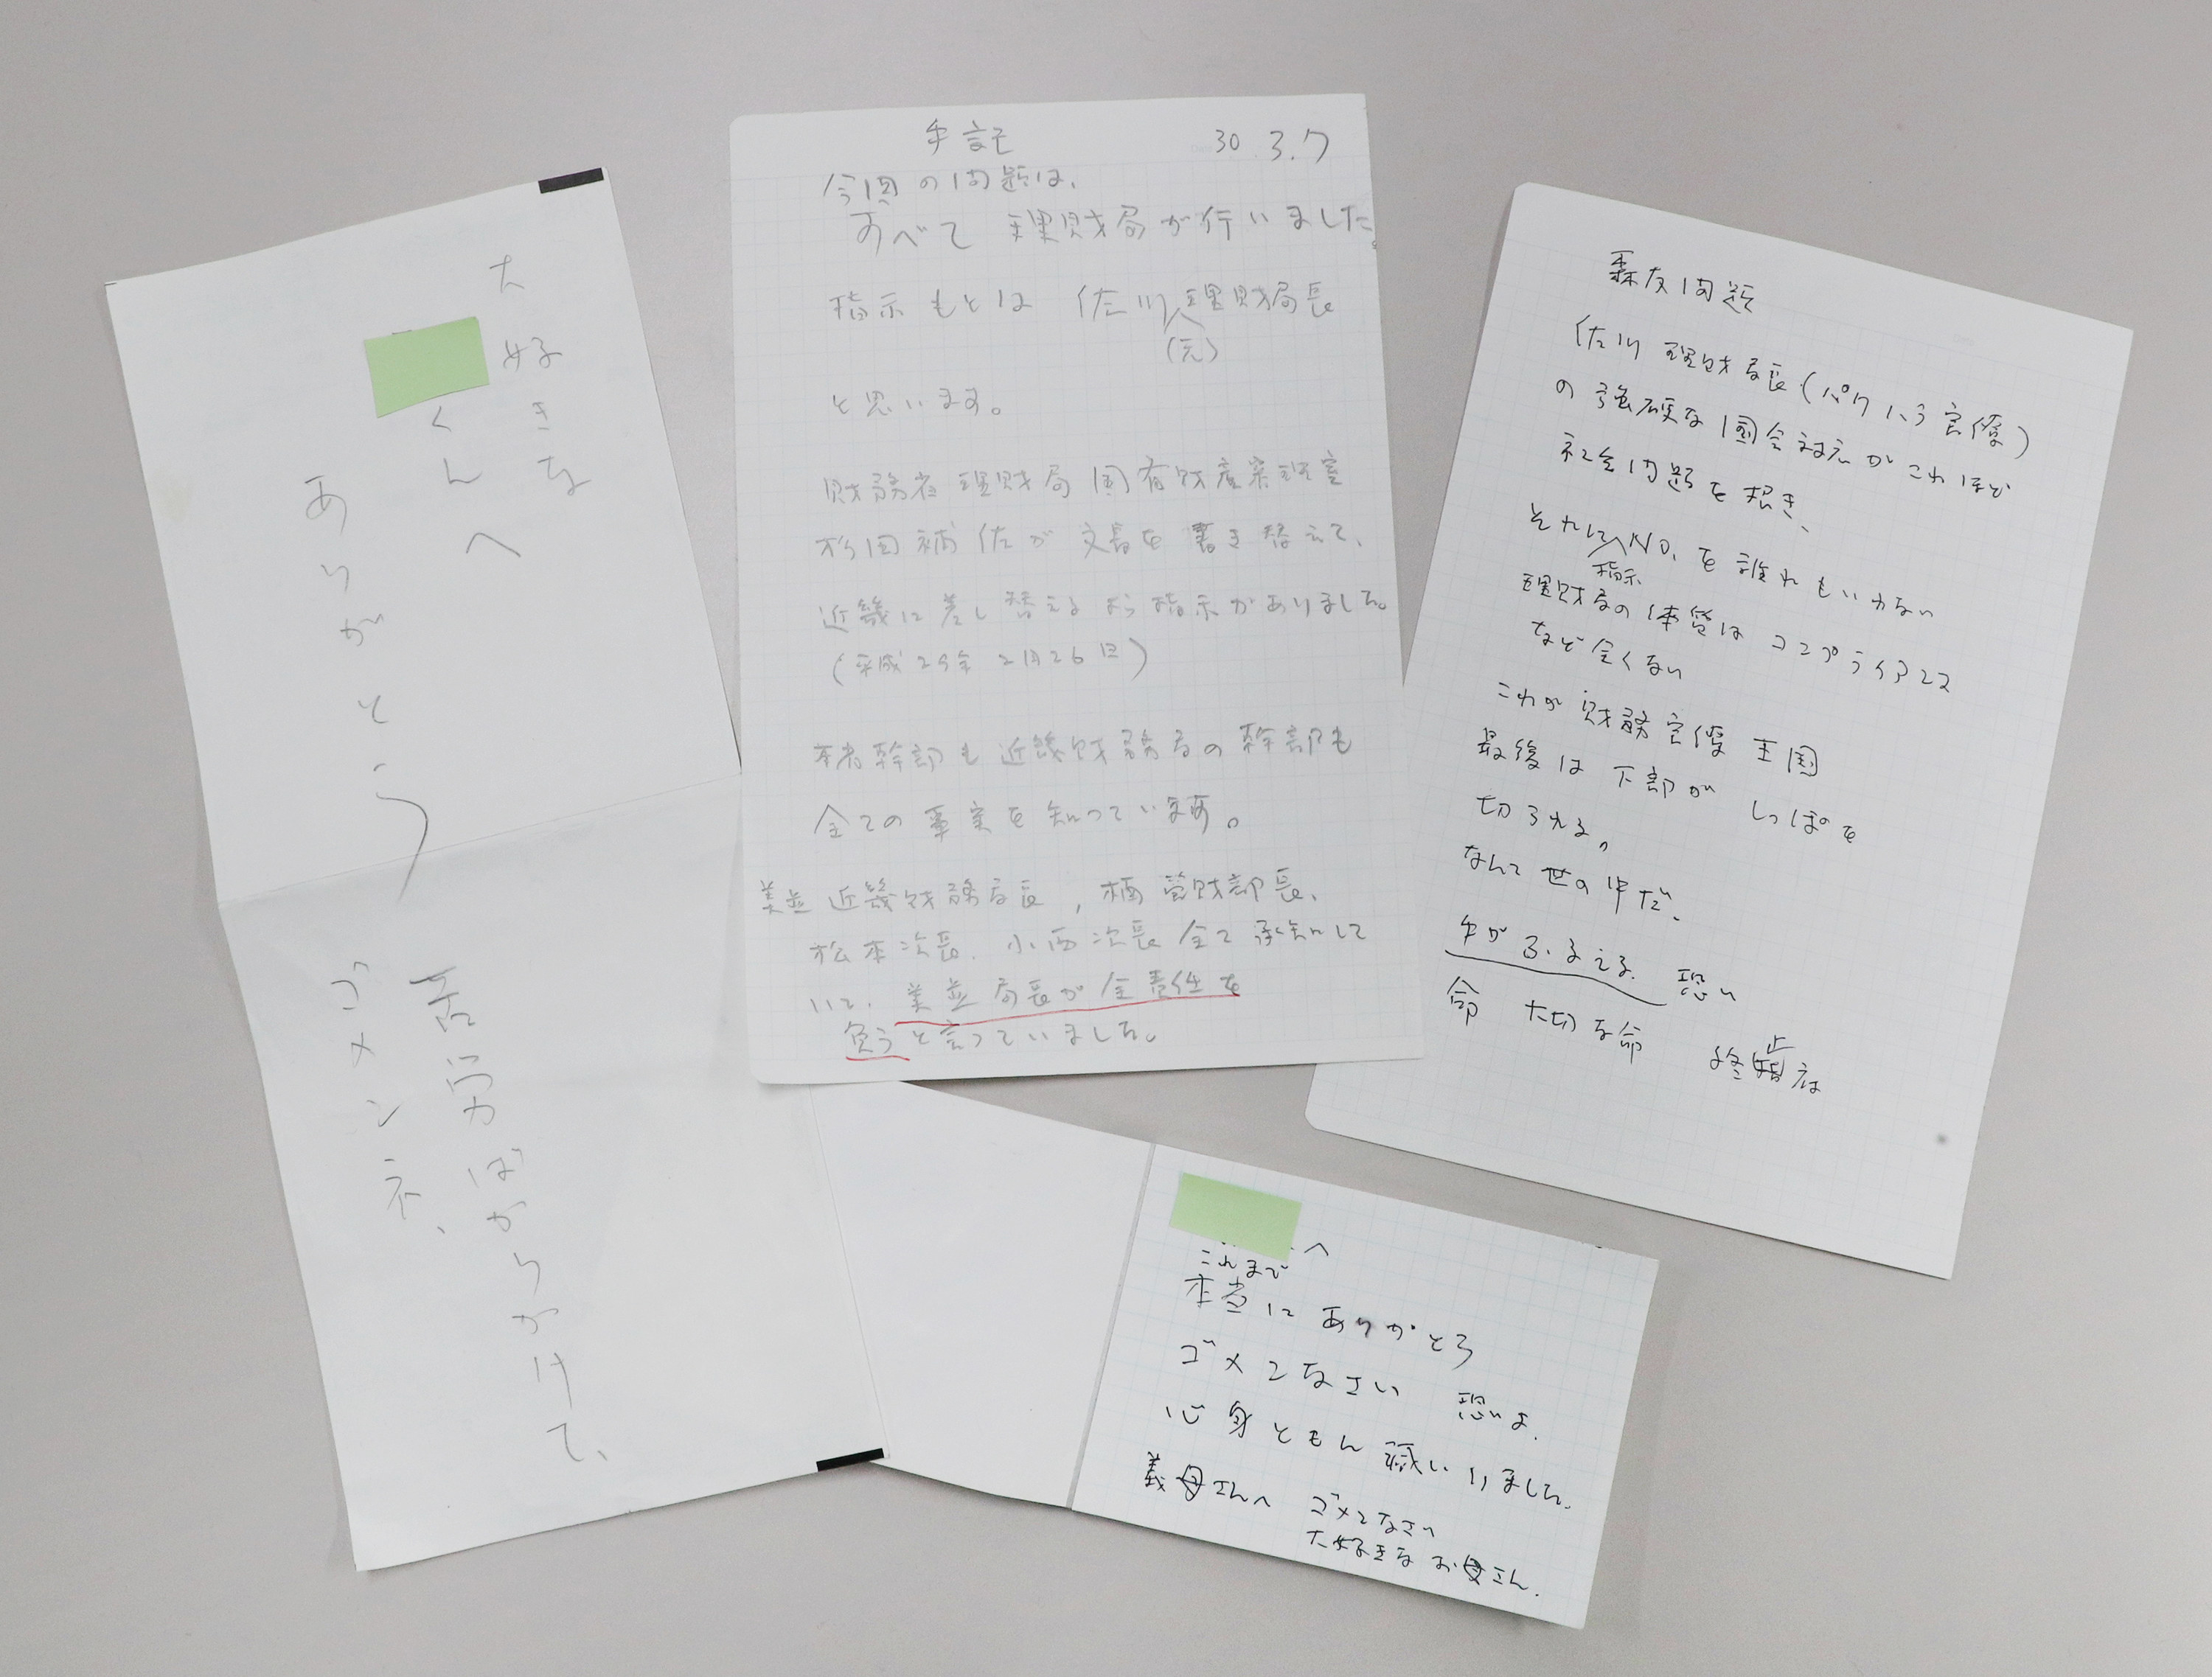 大好きな
くんへ
ありがとう
苦労ばかりかけて、
ゴメンネ、
手記 30.3.7
今回の問題は、
すべて 理財局が行いました。
指示もとは 佐川 理財局長
(元)
と思います。
財務省理財局 国有財産審理室
杉田補佐が 文書を 書き替えて、
近畿に差し替えるよう指示がありました。
(平成29年2月26日)
本省幹部も 近畿財務局の幹部も
全ての事実を知っています。
美並 近畿財務局長, 楠 管財部長、
松本次長、小西次長 全て 承知して
いて、美並 局長が 全責任を
負うと言っていました。
森友問題
佐川 理財局長(パワハラ官僚)
の強硬な国会対応がこれほど
社会問題を招き、
それにNO,を誰れもいわない
指示
理財局の体質は コンプライアンス
など全くない
これが財務官僚王国
最後は下部が しっぽを
切られる。
なんて世の中だ、
手がふるえる、恐い
命 大切な命 終止符
へ
これまで
本当に ありがとう
ゴメンなさい 恐いよ、
心身ともに 滅いりました、
義母さんへ ゴメンなさい
大好きな お母さん、